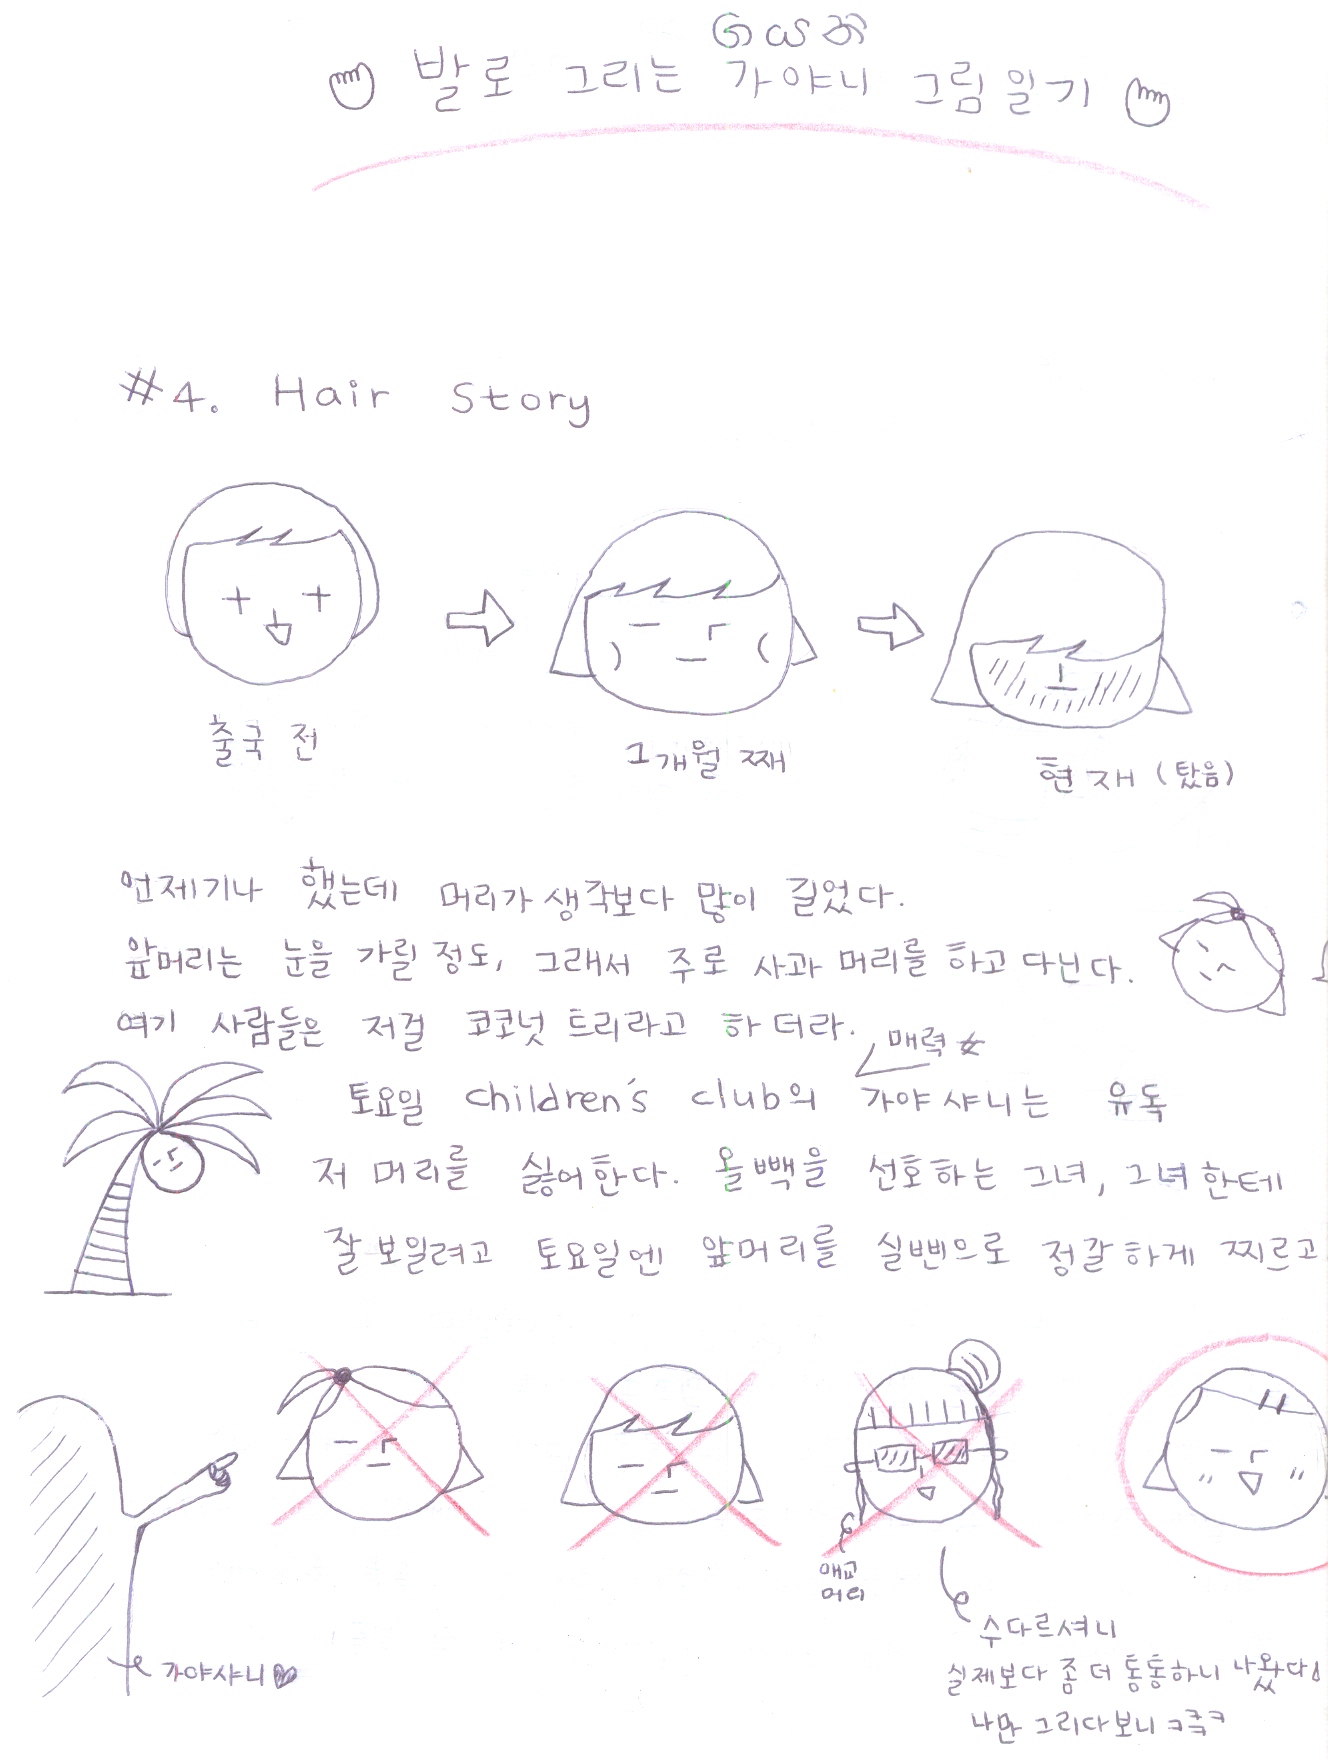 발로 그리는 가야니 그림일기
#4. Hair Story
출국 전
1개월 째
현재 (탔음)
언제기나 했는데 머리가 생각보다 많이 길었다.
앞머리는 눈을 가릴 정도, 그래서 주로 사과 머리를 하고 다닌다.
여기 사람들은 저걸 코코넛 트리라고 하더라.
매력
토요일 children's club의 가야샤니는 유독
저 머리를 싫어한다. 올빽을 선호하는 그녀, 그녀한테
잘 보일려고 토요일엔 앞머리를 실삔으로 정갈하게 찌르고
애교
머리
수다르셔니
가야샤니
실제보다 좀 더 통통하니 나왔다
나만 그리다보니 ㅋㅋㅋ